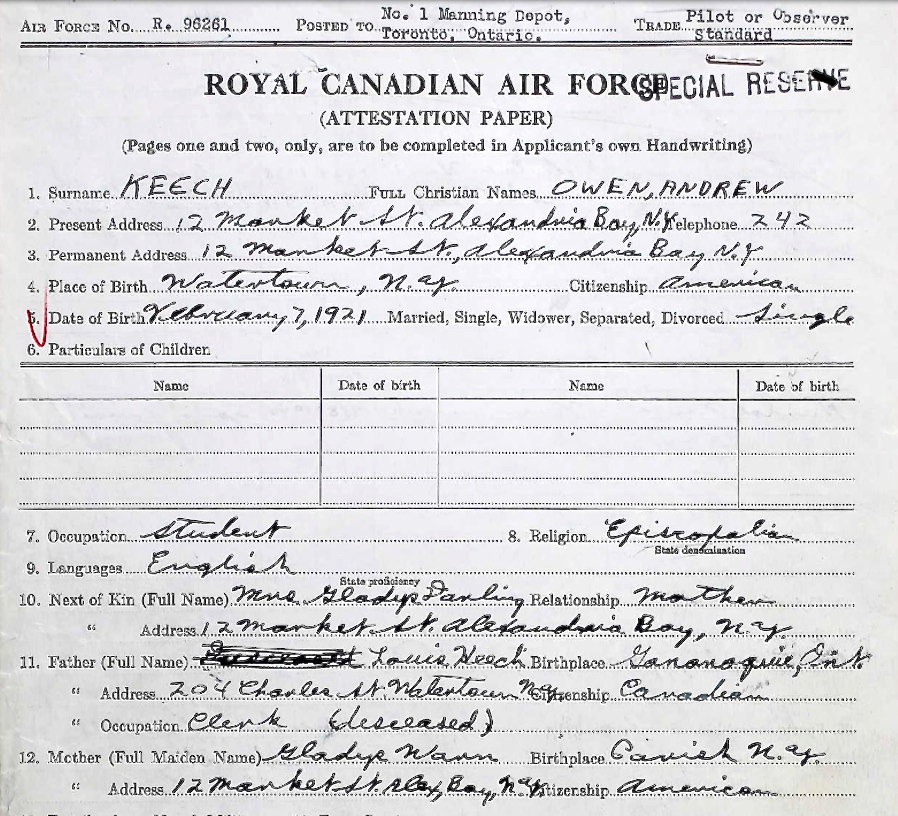 AIR FORCE No. R. 96261 POSTED TO No. 1 Manning Depot, Toronto, Ontario. TRADE Pilot or Observer Standard
ROYAL CANADIAN AIR FORCE SPECIAL RESERVE
(ATTESTATION PAPER)
(Pages one and two, only, are to be completed in Applicant's own Handwriting)
1. Surname KEECH FULL Christian Names OWEN, ANDREW
2. Present Address 12 Market St. Alexandria Bay, N.Y. Telephone 242
3. Permanent Address 12 Market St., Alexandria Bay N.Y.
4. Place of Birth Watertown, N.Y. Citizenship American
5. Date of Birth February 7, 1921 Married, Single, Widower, Separated, Divorced Single
6. Particulars of Children
Name Date of birth Name Date of birth
7. Occupation Student 8. Religion Episcopalian
State denomination
9. Languages English
State proficiency
10. Next of Kin (Full Name) Mrs Gladys Darling Relationship Mother
" Address 12 Market St. Alexandria Bay, N.Y.
11. Father (Full Name) Louis Keech Birthplace Gananoquie, Ont.
" Address 204 Charles St. Watertown N.Y. Citizenship Canadian
" Occupation Clerk (desceased)
12. Mother (Full Maiden Name) Gladys Birthplace N.Y.
" Address 12 Market St. Alex, Bay, N.Y. Citizenship American